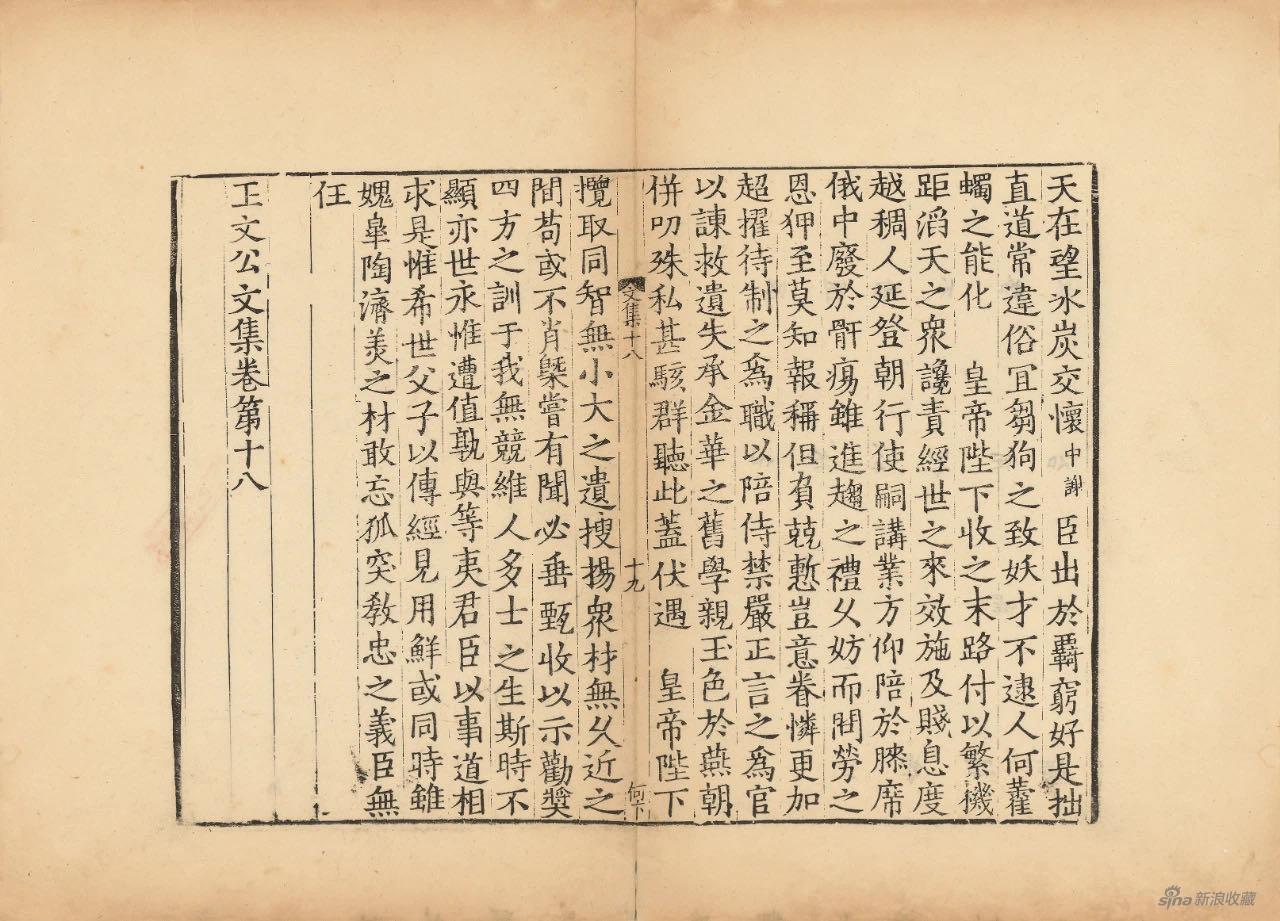 天在望冰炭交懷中謝臣出於覊窮好是拙
直道常違俗冝芻狗之致妖才不逮人何藿
蠋之能化 皇帝陛下收之末路付以繁機
距滔天之衆讒責經世之來效施及賤息度
越稠人延登朝行使嗣講業方仰陪於睞席
俄中廢於骭瘍雖進趨之禮乆妨而閔勞之
恩狎至莫知報稱但負兢慙豈意眷憐更加
超擢待制之爲職以陪侍禁嚴正言之爲官
以諫救遺失承金華之舊學親玉色於燕朝
併叨殊私甚駭群聽此蓋伏遇 皇帝陛下
文集十八 十九 何下
攬取同智無小大之遺搜揚衆材無乆近之
間苟或不肖槩嘗有聞必垂甄收以示勸奬
四方之訓于我無競維人多士之生斯時不
顯亦世永惟遭值孰與等夷君臣以事道相
求是惟希世父子以傳經見用鮮或同時雖
媿臯陶濟美之材敢忘狐突敎忠之義臣無
任
王文公文集卷第十八
sina新浪收藏